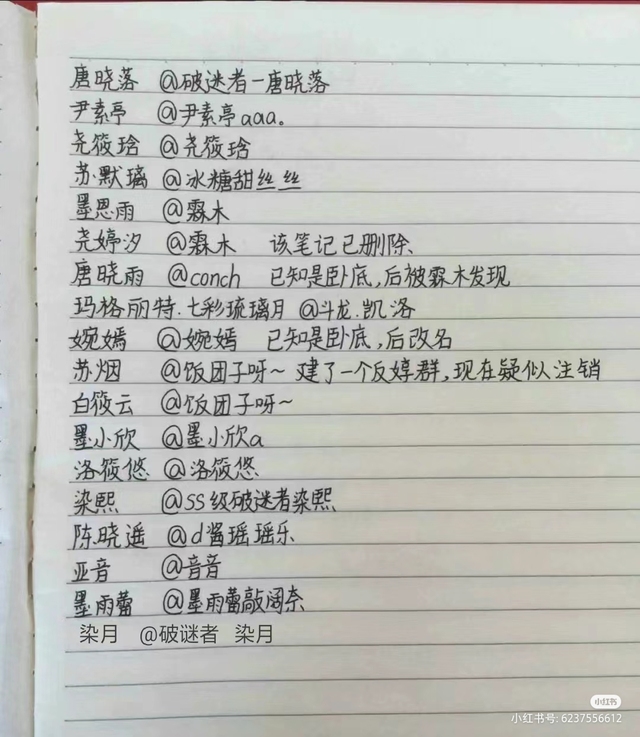 唐晓落 @破迷者一唐晓落
尹素亭 @尹素亭aaa。
尧筱琀 @尧筱琀
苏默璃 @冰糖甜丝丝
墨思雨 @霖木
尧婷汐 @霖木 该笔记已删除、
唐晓雨 @conch 已知是卧底,后被霖木发现
玛格丽特.七彩琉璃月 @斗龙.凯洛
婉嫣 @婉嫣 已知是卧底,后改名
苏烟 @饭团子呀~ 建了一个反婷群,现在疑似注销
白筱云 @饭团子呀~
墨小欣 @墨小欣a
洛筱悠 @洛筱悠
染熙 @SS级破迷者染熙
陈晓遥 @d酱瑶瑶乐
亚音 @音音
墨雨蕾 @墨雨蕾敲阔奈
染月 @破谜者 染月
小红书
小红书号: 6237556612